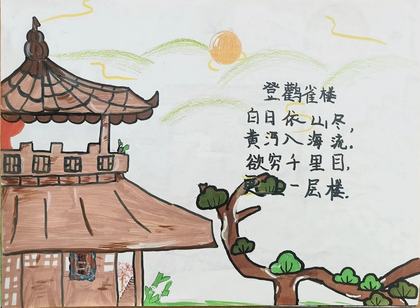 登鹳雀楼
白日依山尽,
黄河入海流.
欲穷千里目,
更一层楼.